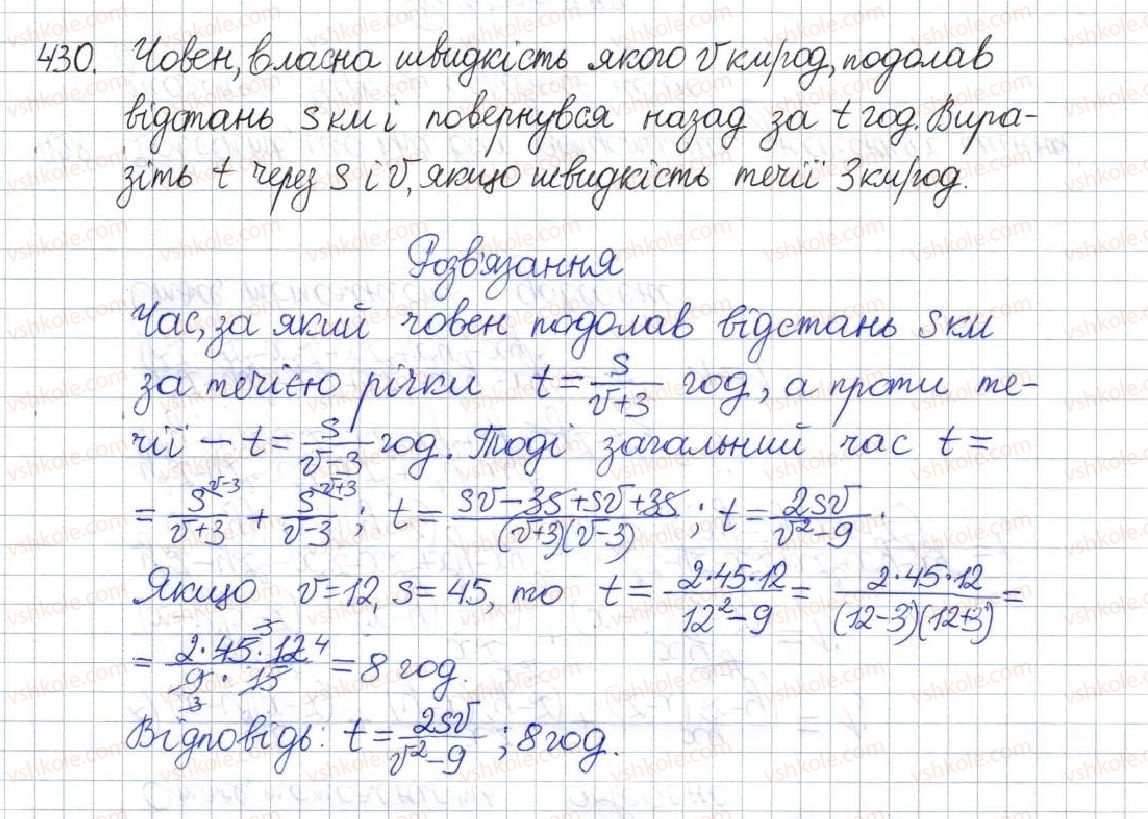 430. Човен, власна швидкість якого v км/год, подолав
відстань s км і повернувся назад за t год. Вира-
зіть t через s і v, якщо швидкість течії 3 км/год.
Розв'язання
Час, за який човен подолав відстань s км
за течією річки t = s/(v+3) год, а проти те-
чії – t = s/(v-3) год. Тоді загальний час t =
= s^(v-3)/(v+3) + s^(v+3)/(v-3); t = (sv-3s+sv+3s)/((v+3)(v-3)); t = 2sv/(v²-9).
Якщо v=12, s=45, то t = (2·45·12)/(12²-9) = (2·45·12)/((12-3)(12+3)) =
= (2·45³·12⁴)/(9₃·15) = 8 год.
Відповідь: t = 2sv/(v²-9); 8 год.